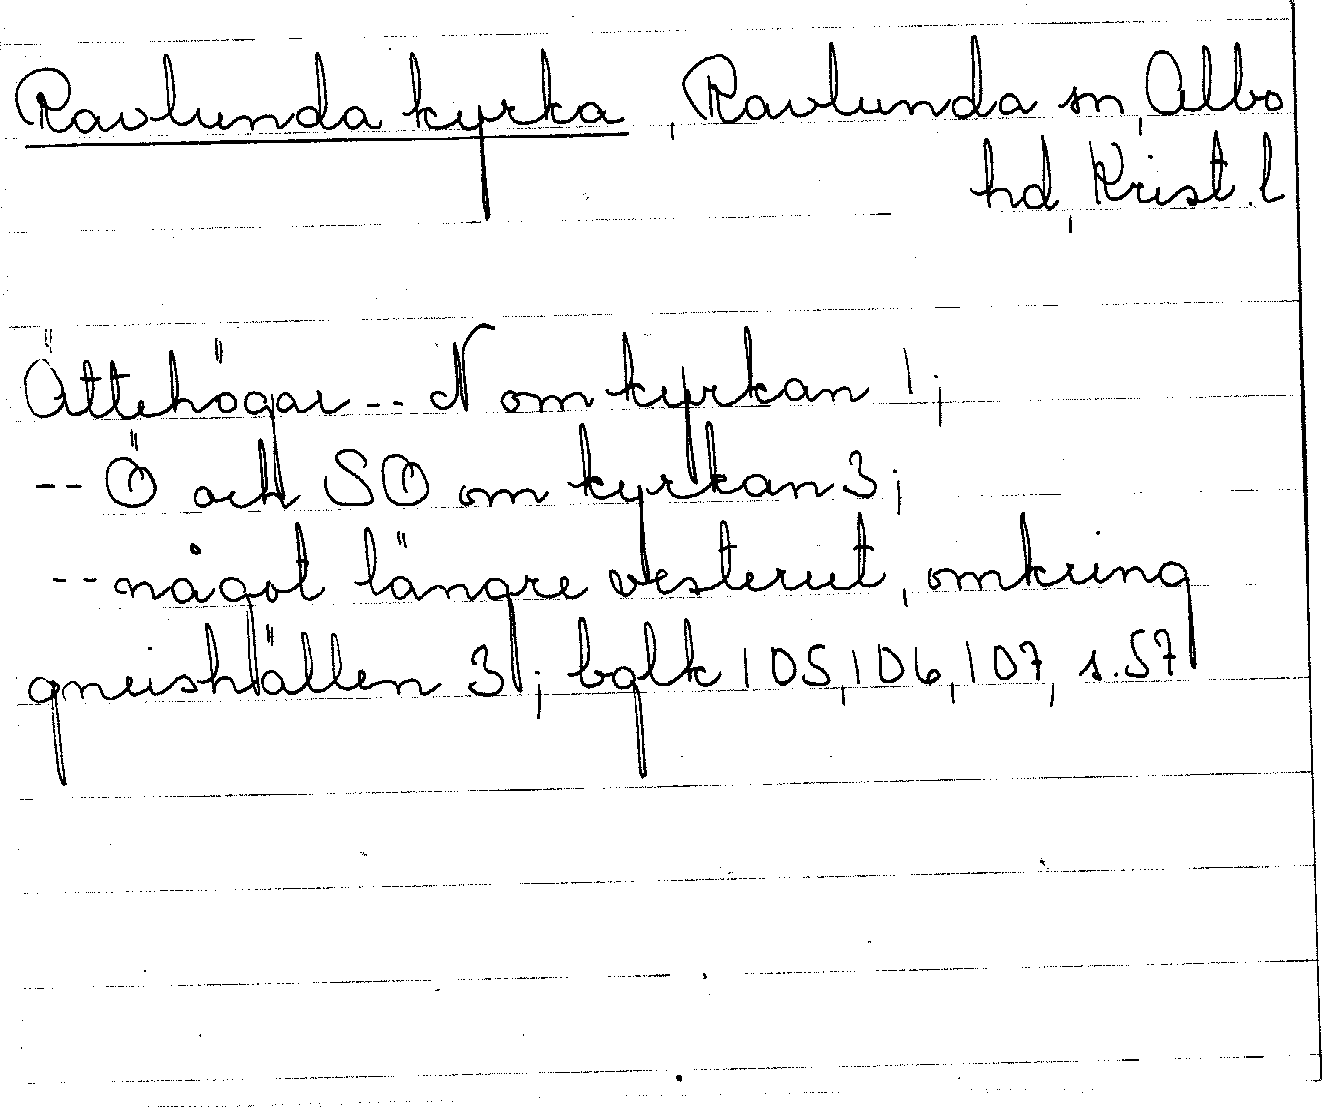 Ravlunda kyrka, Ravlunda sn, Albo
hd, Krist. l
Ättehögar -- N om kyrkan 1;
-- Ö och SO om kyrkan 3;
-- något längre vesterut, omkring
gneishällen 3; bglk 105, 106, 107, s. 57